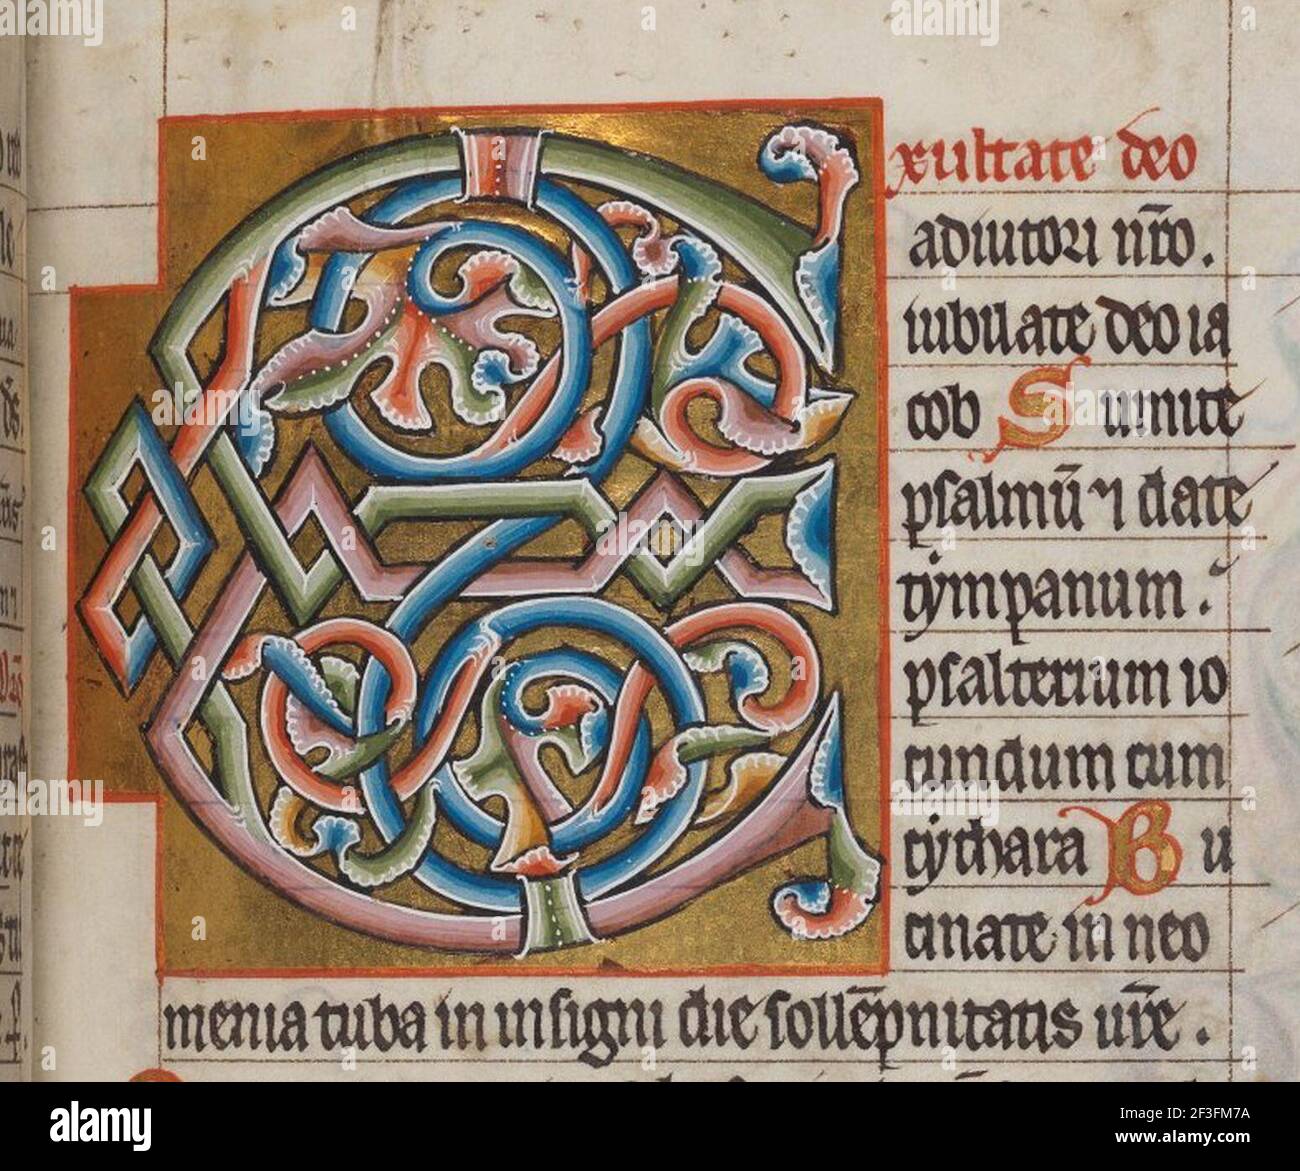 Exultate deo
adiutori nr̄o.
iubilate deo ia
cob Sumite
psalmū ⁊ date
tympanum.
psalterium io
cundum cum
cythara Bu
cinate in neo
menia tuba in insigni die sollēpnitatis ur̄e.
alamy
Image ID: 2F3FM7A
www.alamy.com